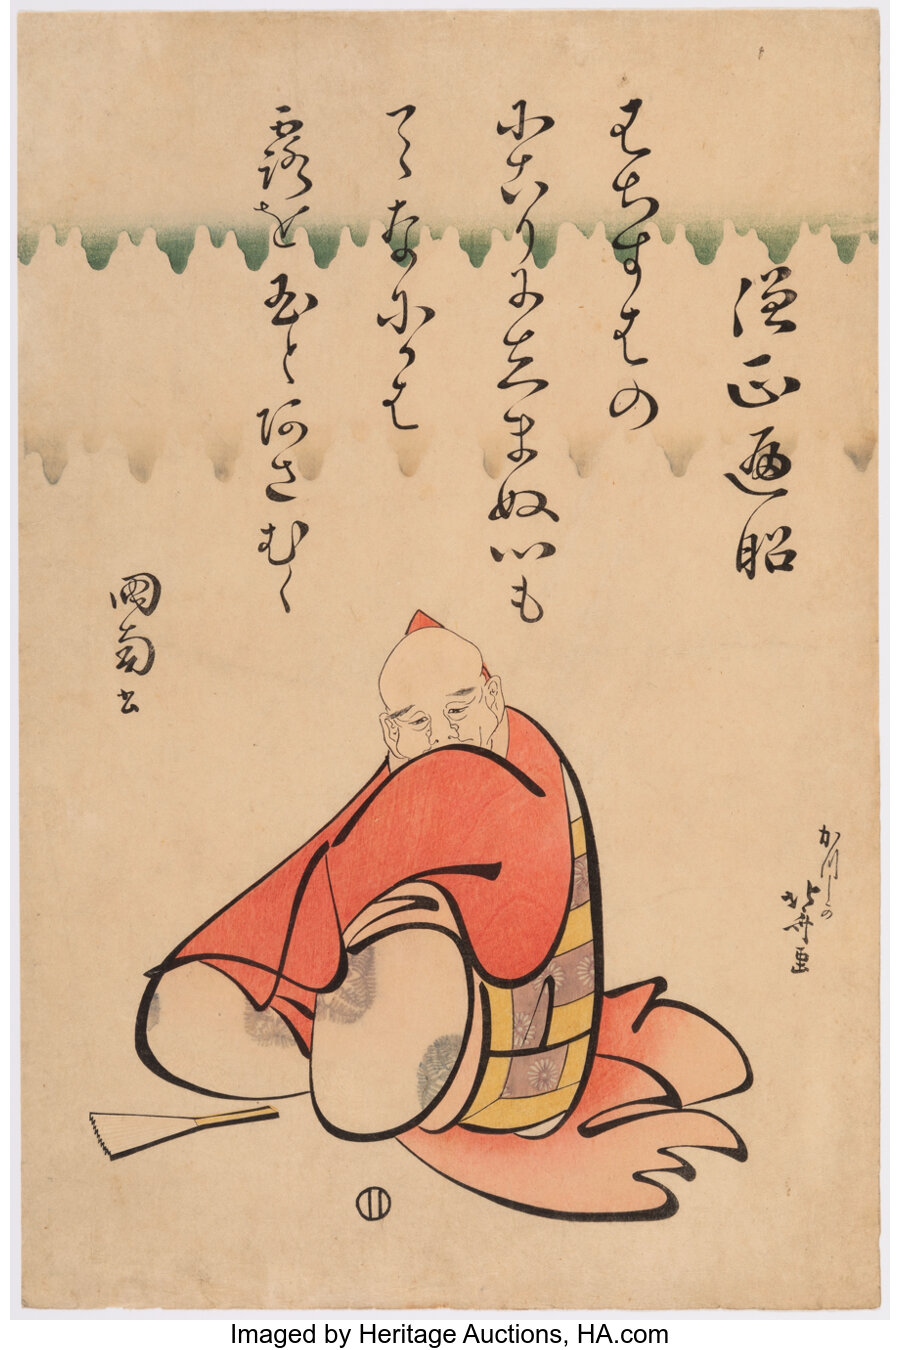 僧正遍昭
はちすはの
にこりにしまぬ心も
てなにかは
露を玉とあさむく
國南書
かつしかの
北舟画
Imaged by Heritage Auctions, HA.com